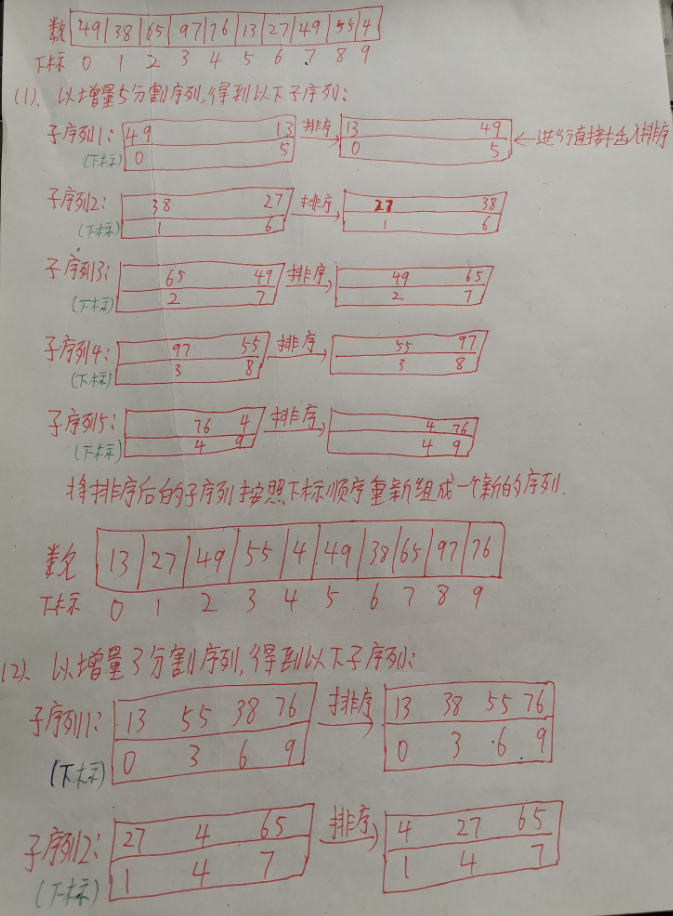 数 49 38 65 97 76 13 27 49 55 4
下标 0 1 2 3 4 5 6 7 8 9
(1)、以增量5分割序列,得到以下子序列:
子序列1: 49 13 排序 13 49 ←进行直接插入排序
(下标) 0 5 0 5
子序列2: 38 27 排序 27 38
(下标) 1 6 1 6
子序列3: 65 49 排序 49 65
(下标) 2 7 2 7
子序列4: 97 55 排序 55 97
(下标) 3 8 3 8
子序列5: 76 4 排序 4 76
(下标) 4 9 4 9
将排序后的子序列按照下标顺序重新组成一个新的序列.
数 13 27 49 55 4 49 38 65 97 76
下标 0 1 2 3 4 5 6 7 8 9
(2)、以增量3分割序列,得到以下子序列:
子序列1: 13 55 38 76 排序 13 38 55 76
(下标) 0 3 6 9 0 3 6 9
子序列2: 27 4 65 排序 4 27 65
(下标) 1 4 7 1 4 7